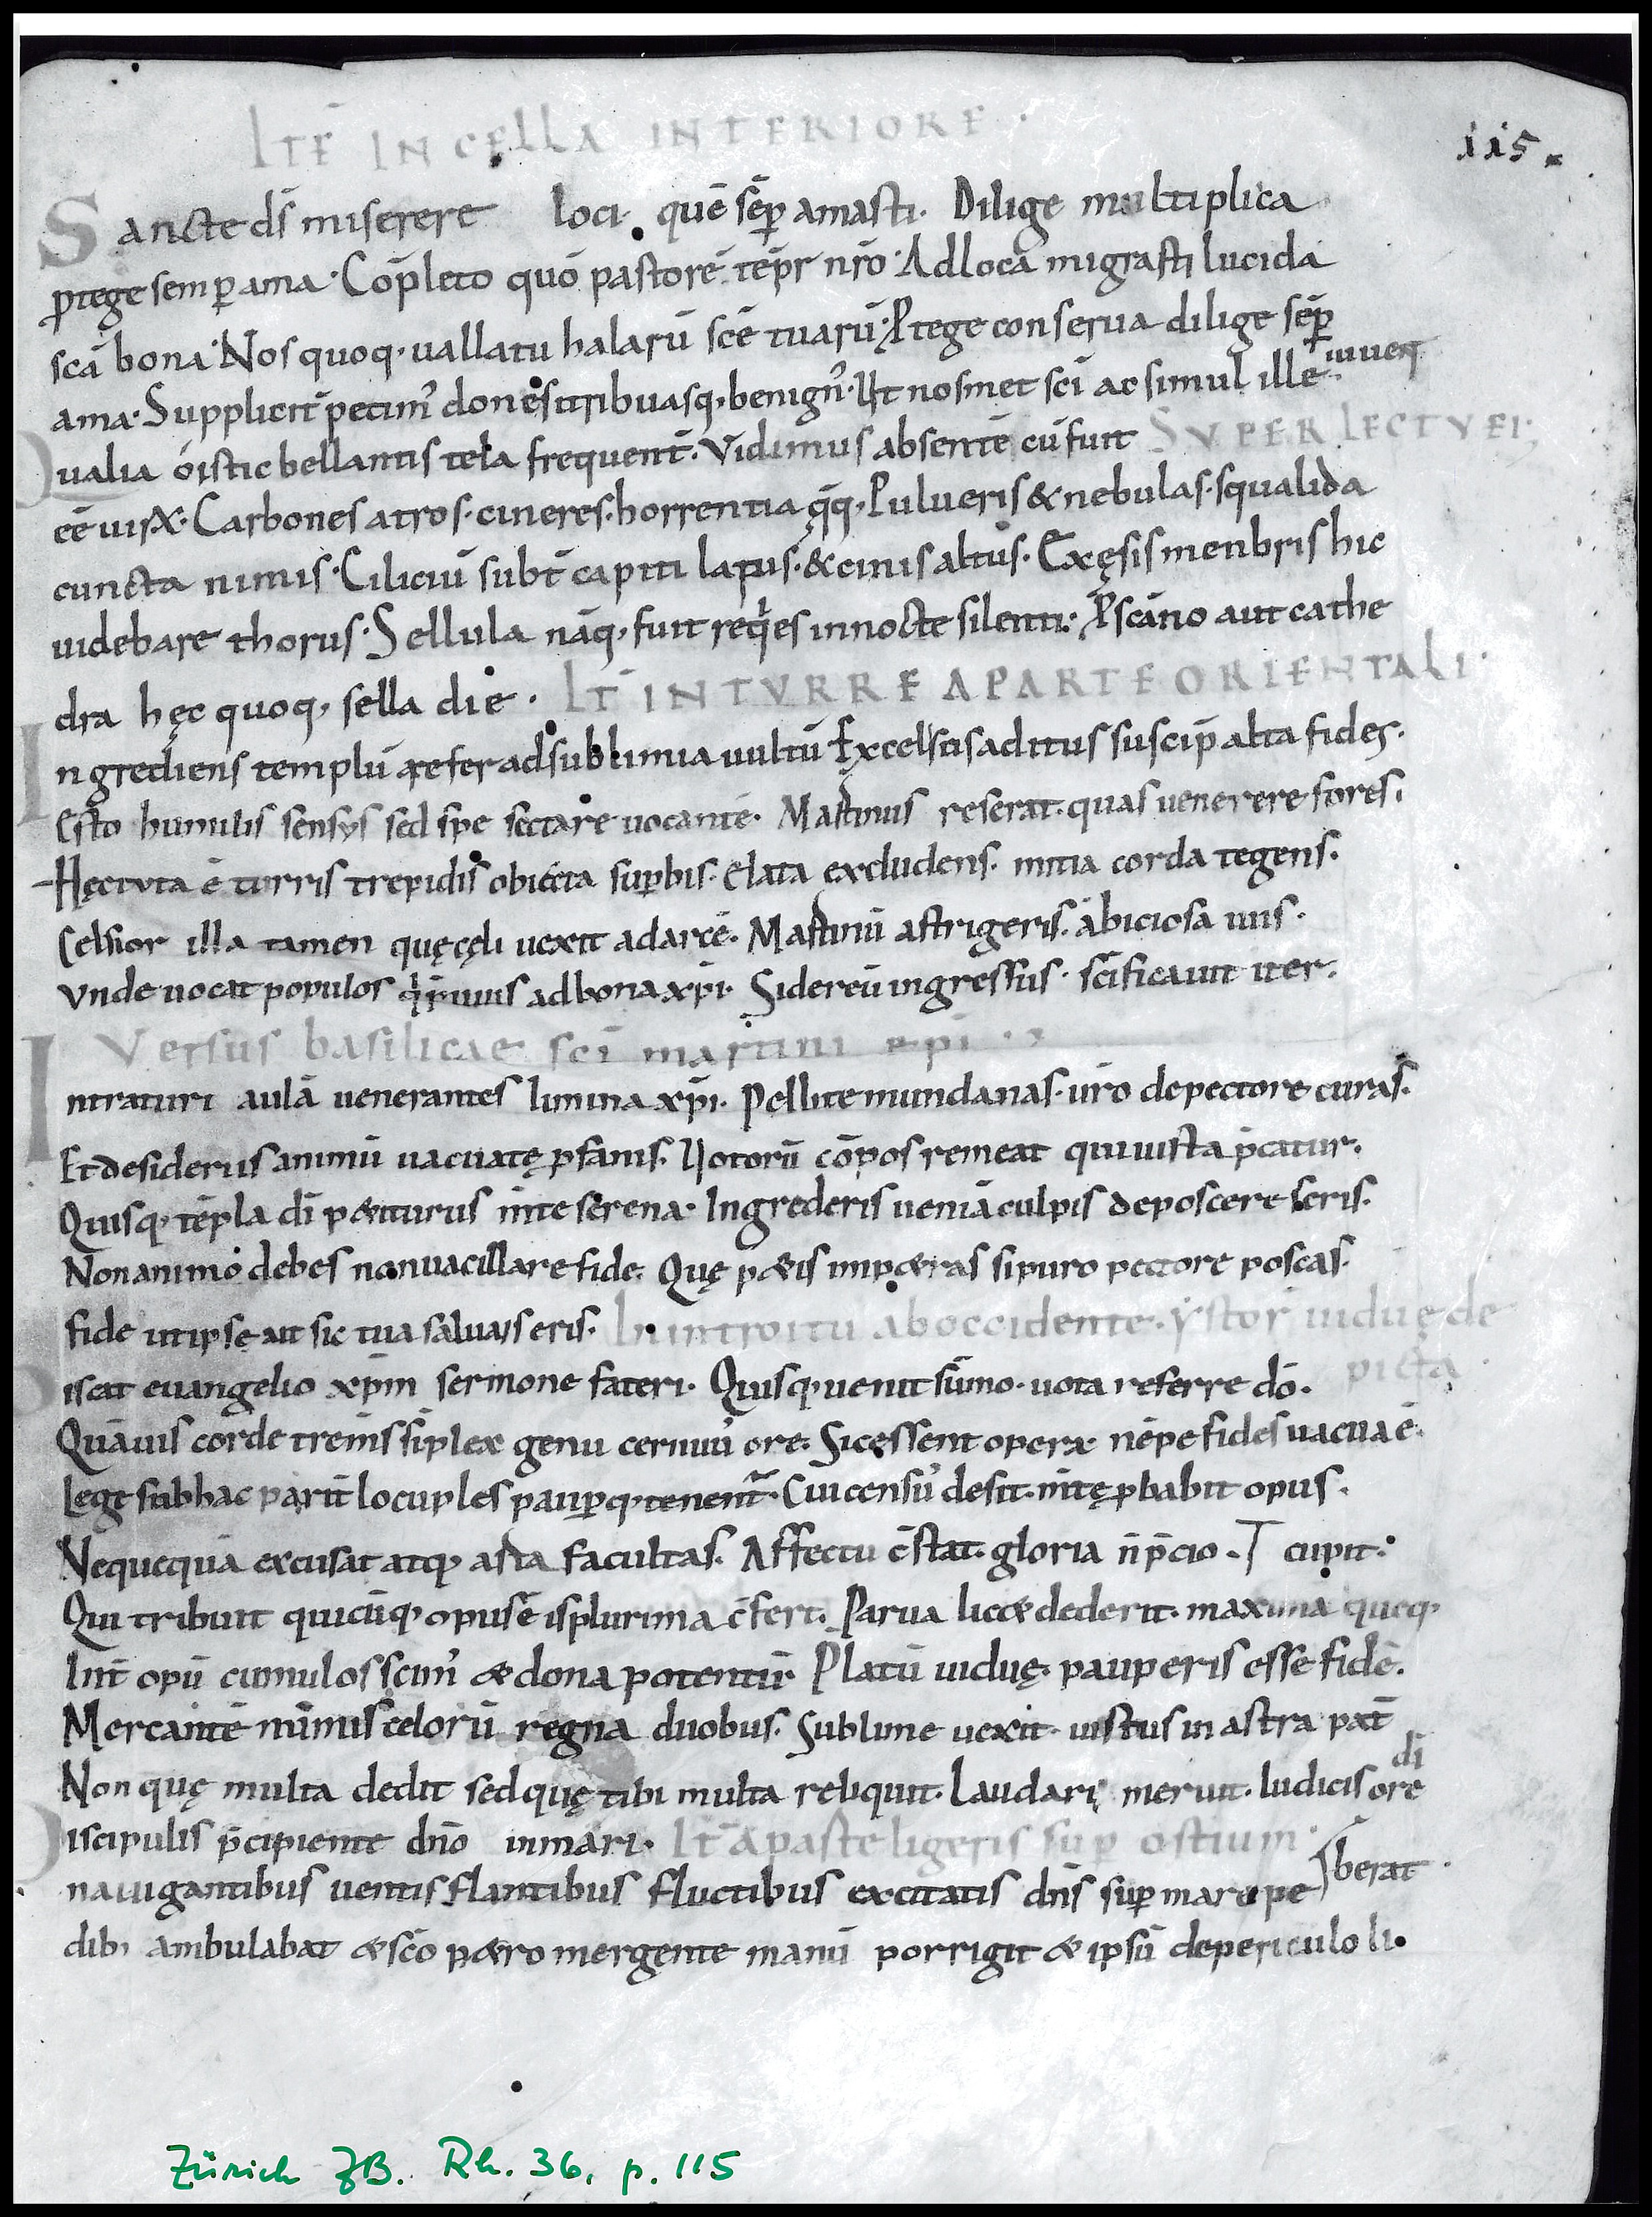 ITĒ IN CELLA INTERIORE.
115.
Sancte ds̄ miserere loci. quē sēꝑ amasti. Dilige multiplica
ꝓtege semꝑ ama. Cōpleto quō pastorē tēpr nr̄o. Ad loca migrasti lucida
scā bona. Nos quoq, uallatu halarū scē tuarū. Ptege conserua dilige sēꝑ
ama. Supplicit̄ petim᾽ dones tribuasq, benign᾽. Ut nosmet sc̄i ac simul ille
iuuet
Qualia ó istic bellantis tela frequent̄. Vidimus absentē cū fuit SVPER LECTV EI;
cē uisx. Carbones atros. cineres. horrentia q̄q, Pulueris & nebulas. squalida
cuncta nimis. Ciliciū subt̄ capiti lapis. & cinis altus. Exęsis menbris hic
uidebare thorus. Sellula nāq, fuit reqͥes in nocte silenti. P scāno aut cathe
dra hęc quoq, sella die. IT̄ IN TVRRE A PARTE ORIENTALI.
Ingrediens templū refer ad sublimia uultū Excelsus aditus suscip̄ alta fides.
Esto humilis sensys sed spe sectare uocantē. Martinus reserat. quas uenerere fores.
Hęc tvta ē turris trepidis obiecta suꝑbis. Elata excludens. mitia corda tegens.
Celsior illa tamen quę cęli uexit ad arcē. Martinū astrigeris. ābiciosa uiis.
Vnde uocat populos qͥ p̄uius ad bona xp̄i. Sidereū ingressus. sc̄ificauit iter.
Versus basilicae sc̄i martini epi
Intraturi aulā uenerantes limina xp̄i. Pellite mundanas. ur̄o de pectore curas.
Et desideriis animū uacuatę ꝓfanis. Uotorū cōpos remeat qui iusta p̄catur.
Quisq, tēpla dī p&iturus m̄te serena. Ingrederis ueniā culpis deposcere seris.
Non animo debes non uacillare fide. Quę p&is imp&ras si puro pectore poscas.
fide ut ipse ait sic tua saluais eris. In introitu ab occidente. ystor uiduę de
picta.
Discat euangelio xp̄m sermone fateri. Quisq, uenit sūmo. uota referre dō.
Quāuis corde trem̄s sīplex genu cernuū ore. Si cessent opera nēpe fides uacua ē.
Lege sub hac parit̄ locuples pauꝑq, tenent᷑. Cui censū᾽ desit. m̄tę ꝓbabit opus.
Nequequā excusat atq, arta facultas. Affectu c̄stat. gloria n̄ p̄cio. T cupit.
Qui tribuit quicūq, opus ē is plurima c̄fert. Parua lic& dederit. maxima queq,
Int̄ opū cumulos scim᾽ & dona potentū. Platū uiduę. pauperis esse fidē.
Mercantē minimis celorū regna duobus. Sublime uexit. iustus in astra pat̄
Non quę multa dedit sed quę tibi multa reliquit. Laudari meruit. Iudicis ore
di
Discipulis p̄cipiente dn̄o in mari. It̄ a parte ligeris suꝑ ostium.
nauigantibus uentis flantibus fluctibus excitatis dn̄s suꝑ mare pe
berat.
dib, ambulabat & sc̄o p&ro mergente manū porrigit & ipsū de periculo li.
Zürich ZB. Rh. 36, p. 115